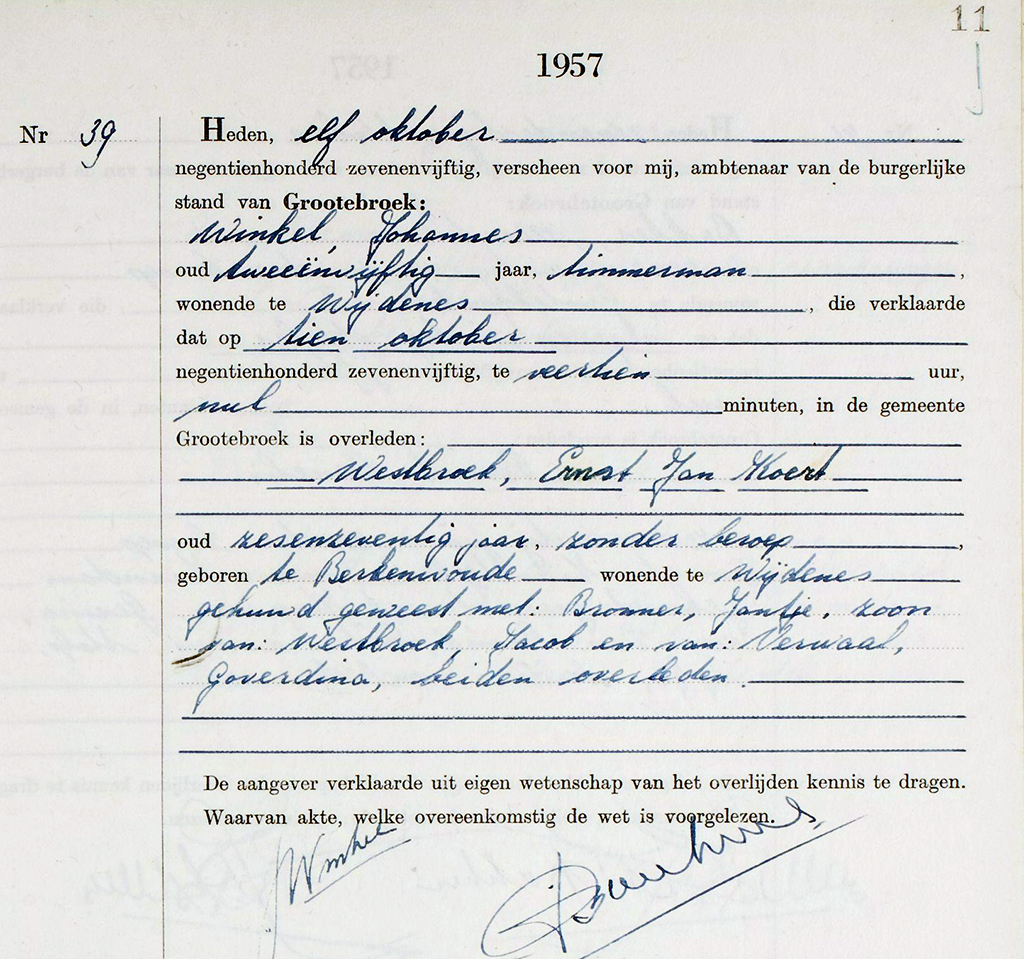 11
1957
Nr 39 Heden, elf oktober
negentienhonderd zevenenvijftig, verscheen voor mij, ambtenaar van de burgerlijke
stand van Grootebroek:
Winkel, Johannes
oud tweeënvijftig jaar, timmerman,
wonende te Wijdenes, die verklaarde
dat op tien oktober
negentienhonderd zevenenvijftig, te veertien uur,
nul minuten, in de gemeente
Grootebroek is overleden:
Westbroek, Ernst Jan Koert
oud zesenzeventig jaar, zonder beroep,
geboren te Berkenwoude wonende te Wijdenes
gehuwd geweest met: Bronner, Jantje, zoon
van: Westbroek, Jacob en van: Verwaal,
Goverdina, beiden overleden.
De aangever verklaarde uit eigen wetenschap van het overlijden kennis te dragen.
Waarvan akte, welke overeenkomstig de wet is voorgelezen.
Winkel